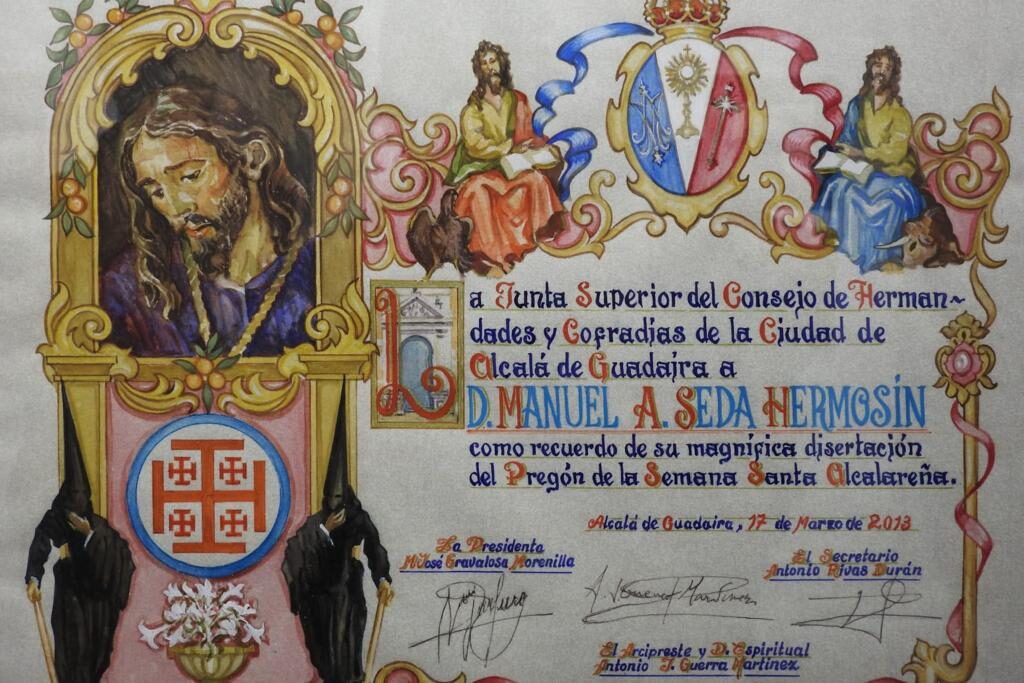 La Junta Superior del Consejo de Herman~
dades y Cofradias de la Ciudad de
Alcalá de Guadaira a
D. MANUEL A. SEDA HERMOSÍN
como recuerdo de su magnifica disertación
del Pregón de la Semana Santa Alcalareña.
Alcalá de Guadaira, 17 de Marzo de 2013
La Presidenta
Mª José Gravalosa Morenilla
El Secretario
Antonio Rivas Durán
El Arcipreste y D. Espiritual
Antonio J. Guerra Martinez